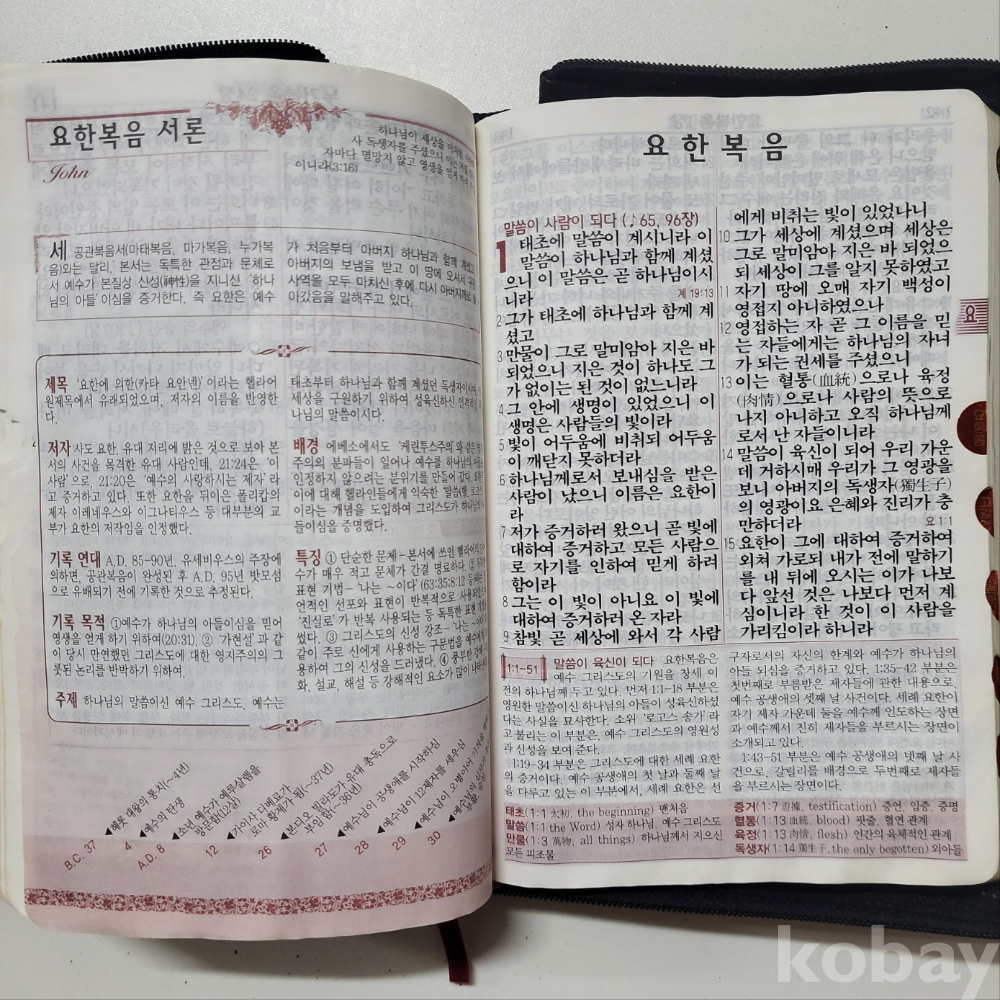 요한복음 서론
John
하나님이 세상을
사 독생자를 주셨으니
자마다 멸망치 않고 영생을
이니라(3:16)
세 공관복음세(마태복음, 마가복음, 누가복
음)와는 달리, 본서는 독특한 관점과 문체로
서 예수가 본질상 신성(神性)을 지니신 '하나
님의 아들'이심을 증거한다. 즉 요한은 예수
가 처음부터 아버지 하나님과 함께 계셨고
아버지의 보냄을 받고 이 땅에 오셔서
사역을 모두 마치신 후에 다시 아버지께로
아갔음을 말해주고 있다.
제목 '요한에 의한(카타 요안넨)'이라는 헬라어
원제목에서 유래되었으며, 저자의 이름을 반영한
다.
저자 사도 요한. 유대 지리에 밝은 것으로 보아 본
서의 사건을 목격한 유대 사람인데, 21:24은 '이
사람'으로, 21:20은 '예수의 사랑하시는 제자'라
고 증거하고 있다. 또한 요한을 뒤이은 폴리갑의
제자 이레네우스와 이그나티우스 등 대부분의 교
부가 요한의 저작임을 인정했다.
기록 연대 A.D. 85-90년. 유세비우스의 주장에
의하면, 공관복음이 완성된 후 A.D. 95년 밧모섬
으로 유배되기 전에 기록한 것으로 추정된다.
기록 목적 ①예수가 하나님의 아들이심을 믿어
영생을 얻게 하기 위하여(20:31), ② '가현설'과 같
이 당시 만연했던 그리스도에 대한 영지주의의 그
릇된 논리를 반박하기 위하여
주제 하나님의 말씀이신 예수 그리스도, 예수는
태초부터 하나님과 함께 계셨던 독생자이시며,
세상을 구원하기 위하여 성육신하신
나님의 말씀이시다.
배경 에베소에서도 '케린투스주의'와 같은
주의의 분파들이 일어나 예수를 하나님의
인정하지 않으려는 분위기를 만들어 갔다.
이에 대해 헬라인들에게 익숙한 '말씀(헬, 로고스)
이라는 개념을 도입하여 그리스도가 하나님의
들이심을 증명했다.
특징 ① 단순한 문체 – 본서에 쓰인 헬라어의
수가 매우 적고 문체가 간결 명료하다. ②
표현 기법 – '나는 ~이다'(6:35;8:12 등)
언적인 선포와 표현이 반복적으로 사용되었으며
'진실로'가 반복 사용되는 등 독특한 표현
썼다. ③ 그리스도의 신성 강조 – '나는
같이 주로 신에게 사용하는 구문법을 예수에게
용하여 그의 신성을 드러냈다. ④ 풍부한
화, 설교, 해설 등 강해적인 요소가 많이
B.C. 37 ◀헤롯 대왕의 통치(~4년)
4 ◀예수의 탄생
A.D. 8 ◀소년 예수가 예루살렘을 방문함(12살)
12 ◀가이사 디베료가 로마 황제가 됨(~37년)
26 ◀본디오 빌라도가 유대 총독으로 부임함(~36년)
27 ◀예수님이 공생애를 시작하심
28 ◀예수님이 12제자를 세우심
29 ◀예수님이 오병이어
30 ◀예수님의
요한복음
말씀이 사람이 되다 (♪65, 96장)
1 태초에 말씀이 계시니라 이
말씀이 하나님과 함께 계셨
으니 이 말씀은 곧 하나님이시
니라
계 19:13
2 그가 태초에 하나님과 함께 계
셨고
3 만물이 그로 말미암아 지은 바
되었으니 지은 것이 하나도 그
가 없이는 된 것이 없느니라
4 그 안에 생명이 있었으니 이
생명은 사람들의 빛이라
5 빛이 어두움에 비취되 어두움
이 깨닫지 못하더라
6 하나님께로서 보내심을 받은
사람이 났으니 이름은 요한이
라
7 저가 증거하러 왔으니 곧 빛에
대하여 증거하고 모든 사람으
로 자기를 인하여 믿게 하려
함이라
8 그는 이 빛이 아니요 이 빛에
대하여 증거하러 온 자라
9 참빛 곧 세상에 와서 각 사람
에게 비취는 빛이 있었나니
10 그가 세상에 계셨으며 세상은
그로 말미암아 지은 바 되었으
되 세상이 그를 알지 못하였고
11 자기 땅에 오매 자기 백성이
영접지 아니하였으나
12 영접하는 자 곧 그 이름을 믿
는 자들에게는 하나님의 자녀
가 되는 권세를 주셨으니
13 이는 혈통(血統)으로나 육정
(肉情)으로나 사람의 뜻으로
나지 아니하고 오직 하나님께
로서 난 자들이니라
14 말씀이 육신이 되어 우리 가운
데 거하시매 우리가 그 영광을
보니 아버지의 독생자(獨生子)
의 영광이요 은혜와 진리가 충
만하더라
요 1:1
15 요한이 그에 대하여 증거하여
외쳐 가로되 내가 전에 말하기
를 내 뒤에 오시는 이가 나보
다 앞선 것은 나보다 먼저 계
심이니라 한 것이 이 사람을
가리킴이라 하니라
요
1:1-51 말씀이 육신이 되다 요한복음은
예수 그리스도의 기원을 창세 이
전의 하나님께 두고 있다. 먼저 1:1-18 부분은
영원한 말씀이신 하나님의 아들이 성육신하셨
다는 사실을 묘사한다. 소위 '로고스 송가'라
고 불리는 이 부분은, 예수 그리스도의 영원성
과 신성을 보여 준다.
1:19-34 부분은 그리스도에 대한 세례 요한
의 증거이다. 예수 공생애의 첫 날과 둘째 날
을 다루고 있는 이 부분에서, 세례 요한은 선
구자로서의 자신의 한계와 예수가 하나님의
아들 되심을 증거하고 있다. 1:35-42 부분은
첫번째로 부름받은 제자들에 관한 내용으로,
예수 공생애의 셋째 날 사건이다. 세례 요한이
자기 제자 가운데 둘을 예수께 인도하는 장면
과 예수께서 친히 제자들을 부르시는 장면이
소개되고 있다.
1:43-51 부분은 예수 공생애의 넷째 날 사
건으로, 갈릴리를 배경으로 두번째로 제자들
을 부르시는 장면이다.
태초(1:1 太初, the beginning) 맨처음
말씀(1:1 the Word) 성자 하나님, 예수 그리스도
만물(1:3 萬物, all things) 하나님께서 지으신
모든 피조물
증거(1:7 證據, testification) 증언, 입증, 증명
혈통(1:13 血統, blood) 핏줄, 혈연 관계
육정(1:13 肉情, flesh) 인간의 육체적인 관계
독생자(1:14 獨生子, the only begotten) 외아들
kobay